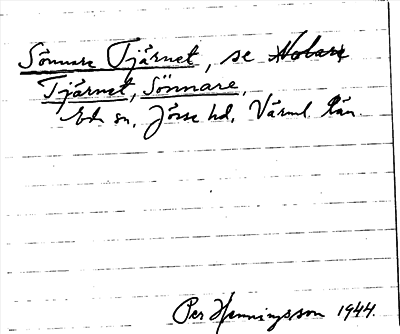 Sönnare Tjärnet, se Nolare
Tjärnet, Sönnare,
Eds sn, Jösse hd, Värml. län.
Per Henningsson 1944.